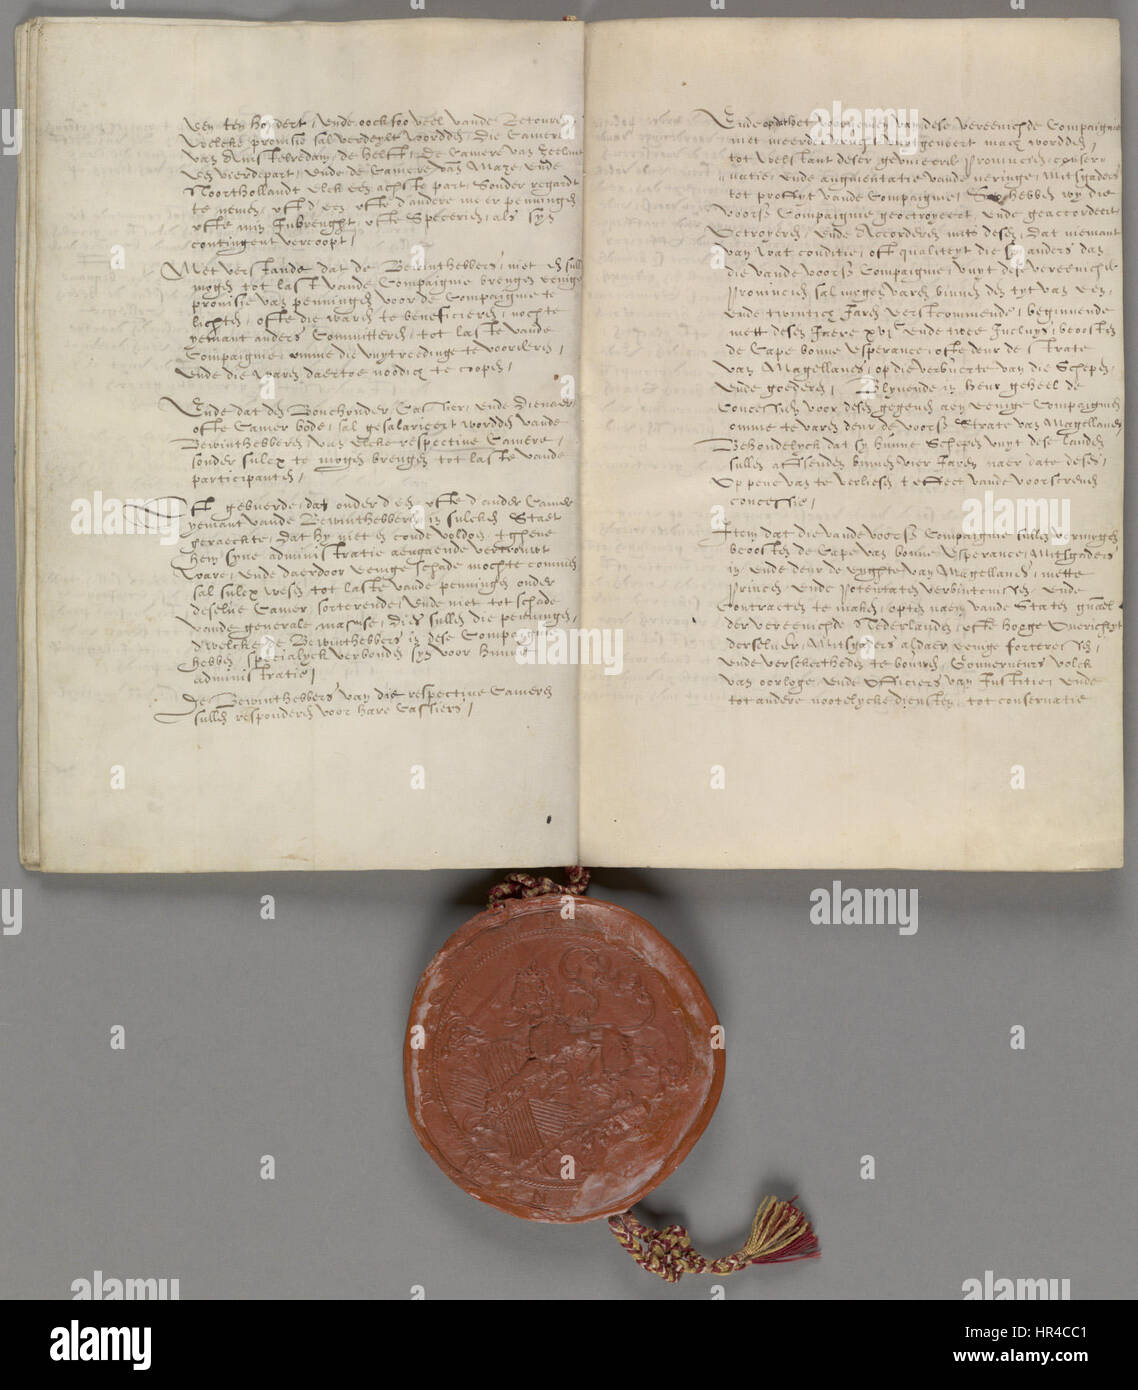 van ten hondert, Ende oock soo veel vande Retouren
Welcke provisie sal verdeylt worden, Die Camere
van Amstelredam, de helft, De Camere van Zeelant
een vierdepart, Ende de Camere van Maze, Ende
Noorthollandt elck een achste part, Sonder regardt
te nemen, oft d'een ofte d'andere meer penningen
ofte min Inbrenght, ofte Specerien, als syn
contingent vercoopt,
Met verstande dat de Bewinthebbers, niet en sullen
mogen tot last vande Compaignie brengen eenige
provisie van penningen voor de Compaignie te
lichten, ofte die waren te beneficieren, nochte
yemant anders Committeren, tot laste vande
Compaignie, omme die uuytreedinge te voorderen,
Ende die waren daertoe noodich te coopen,
Ende dat den Bouchouder, Cassier, Ende Dienaer
ofte Camer bode, sal gesalarieert worden vande
Bewinthebberen van elcke respective Camere,
sonder sulcx te mogen brengen tot laste vande
participanten,
Oft gebuerde, dat onder d'een ofte d'ander Camer
yemant vande Bewinthebberen in sulcken Staet
geraeckte, dat hy niet en conde voldoen, tghene
hem syne administratie aengaende vertrouwt
ware, Ende daerdoor eenige schade mochte commen
sal sulcx wesen tot laste vande penningen onder
deselve Camer, sorterende, Ende niet tot schade
vande generale massse, Dies sullen die penningen,
dwelcke de Bewinthebbers in dese Compaignie
hebben, specialyck verbonden syn voor hunne
administratie,
De Bewinthebbers van die respective Cameren
sullen responderen voor hare Cassiers,
Ende opdat het voornemen van dese vereenichde Compaignie
met meerder vrucht uuytgevoert mach worden,
tot welstant deser geunieerde Provincien, conser-
natie, Ende augmentatie vande neringe, Mitsgaders
tot proffyt vande Compaignie, Soo hebben wy die
voors. Compaignie geoctroyeert, ende geaccordeert
Octroyeren, Ende Accorderen mits desen, Dat niemant
van wat conditie, oft qualiteyt die sy anders dan
die vande voors. Compaignie, vuyt dese vereenichde
Provincien sal mogen varen binnen den tyt van een
Ende twintich Jaren eerstcommende, beginnende
mett desen Jaere xvjc. Ende twee Incluys, beoosten
de Cape bonne Esperance, ofte deur de Strate
van Magellanes, op die verbuerte van die Schepen,
Ende goederen, Blyvende in heur geheel de
Concessien voor desen gegeven aen eenige Compaignien
omme te varen deur de voors. Strate van Magellanes,
Behoudelyck dat sy hunne Schepen vuyt dese landen
sullen affsenden binnen vier Jaren naer date deses,
Op pene van te verliesen t'effect vande voorschreven
concessie,
Item dat die vande voors. Compaignie sullen vermogen
beoosten de Cape van bonne Esperance, Mitsgaders
in Ende deur de enghte van Magellanes, mette
Princen Ende Potentaten verbintenissen, Ende
Contracten te maken, opten naem vande Staten generael
der vereenichde Nederlanden, ofte hooge Overicheyt
derselver, Mitsgaders aldaer eenige forteressen,
Ende versekertheden te bouwen, Gouverneurs volck
van oorloge, Ende Officiers van Justitie, Ende
tot andere nootelycke diensten, tot conservatie
a
alamy
alamy stock photo
HR4CC1
www.alamy.com